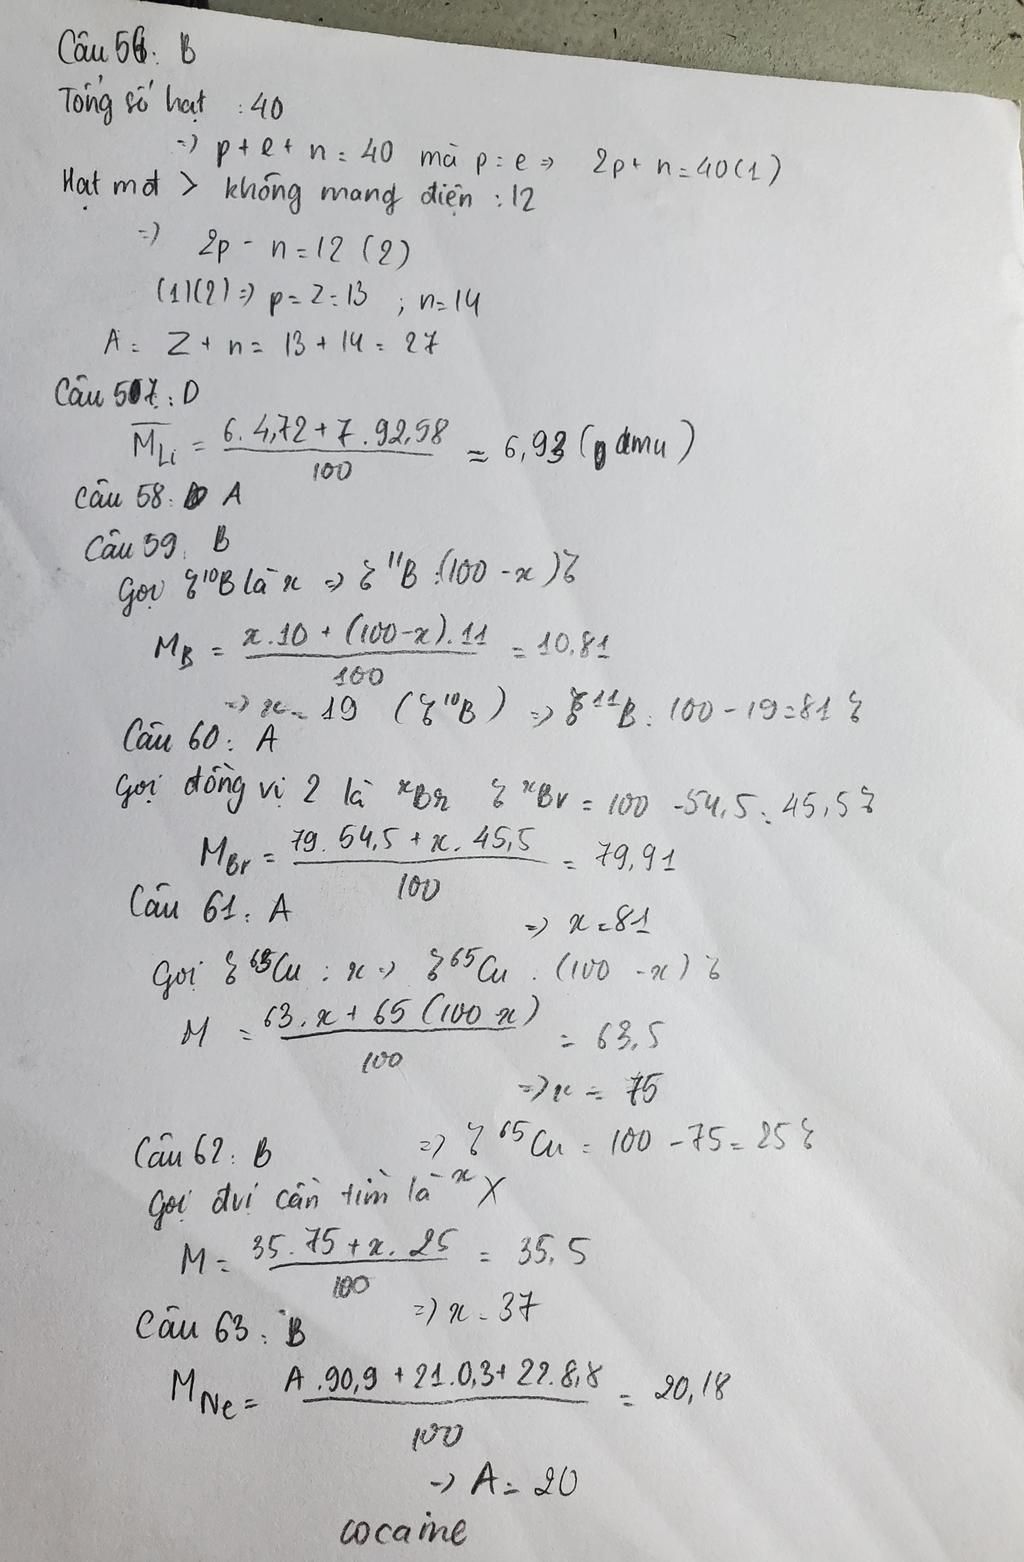 Câu 56: B
Tổng số hạt : 40
=> p + e + n = 40 mà p = e => 2p + n = 40 (1)
Hạt mđ > không mang điện : 12
=> 2p - n = 12 (2)
(1)(2) => p = Z = 13 ; n = 14
A = Z + n = 13 + 14 = 27
Câu 57: D
M̅Li = (6.4,72 + 7.92,58)/100 = 6,93 (amu)
Câu 58: A
Câu 59: B
Gọi % ¹⁰B là x => % ¹¹B : (100 - x)%
MB = (x.10 + (100-x).11)/100 = 10,81
=> x = 19 (% ¹⁰B) => % ¹¹B : 100 - 19 = 81 %
Câu 60: A
Gọi đồng vị 2 là ˣBr % ˣBr = 100 - 54,5 = 45,5 %
MBr = (79.54,5 + x.45,5)/100 = 79,91
Câu 61: A
=> x = 81
Gọi % ⁶³Cu : x => % ⁶⁵Cu : (100 - x) %
M = (63.x + 65(100-x))/100 = 63,5
=> x = 75
=> % ⁶⁵Cu = 100 - 75 = 25 %
Câu 62: B
Gọi đvị cần tìm là ˣX
M = (35.75 + x.25)/100 = 35,5
=> x = 37
Câu 63: B
MNe = (A.90,9 + 21.0,3 + 22.8,8)/100 = 20,18
=> A = 20
cocaine